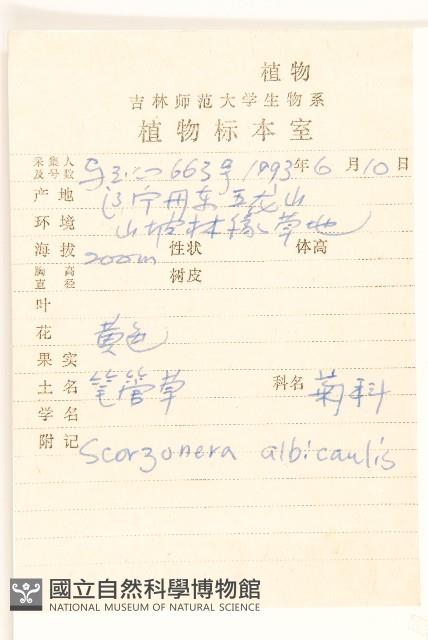 植物
吉林师范大学生物系
植物标本室
采集人及号数 663号 1993年6月10日
产地 辽宁丹东五龙山
环境 山坡林缘草地
海拔 200m 性状 体高
胸高直径 树皮
叶
花 黄色
果实
土名 笔管草 科名 菊科
学名
附记 Scorzonera albicaulis
國立自然科學博物館
NATIONAL MUSEUM OF NATURAL SCIENCE